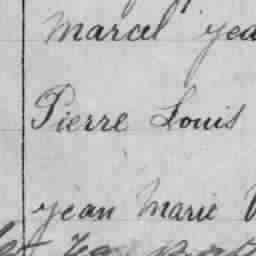 Marcel Jea
Pierre Louis
Jean Marie